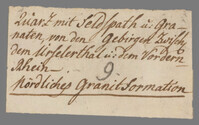 Quarz mit Feldspath u. Gra-
naten, von den Gebirgen zwisch
dem Urselerthal u. dem Vordern
Rhein.
9
Nördliches Granitformation